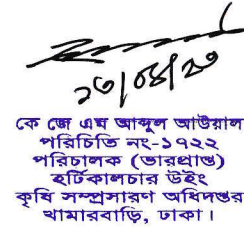 ২৩/০৪/২৩
কে জে এম আব্দুল আউয়াল
পরিচিতি নং-১৭২২
পরিচালক (ভারপ্রাপ্ত)
হর্টিকালচার উইং
কৃষি সম্প্রসারণ অধিদপ্তর
খামারবাড়ি, ঢাকা।